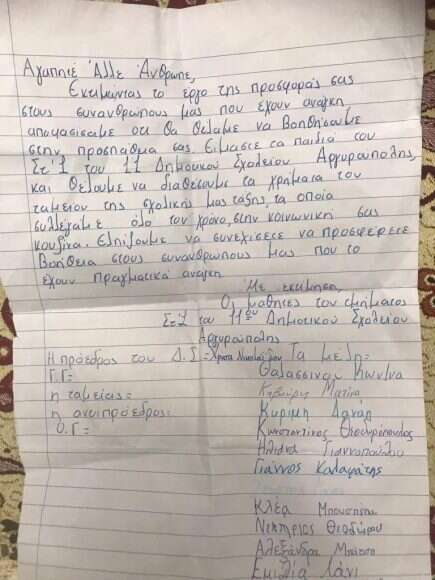 Αγαπητέ Άλλε Άνθρωπε,
Εκτιμώντας το έργο της προσφοράς σας
στους συνανθρώπους μας που έχουν ανάγκη
αποφασίσαμε ότι θα θέλαμε να βοηθήσουμε
στην προσπάθεια σας. Είμαστε τα παιδιά του
Στ'1 του 11 Δημοτικού Σχολείου Αργυρούπολης,
και θέλουμε να διαθέσουμε τα χρήματα του
ταμείου της σχολικής μας τάξης, τα οποία
συλλέξαμε όλο τον χρόνο, στην κοινωνική σας
κουζίνα. Ελπίζουμε να συνεχίσετε να προσφέρετε
βοήθεια στους συνανθρώπους μας που το
έχουν πραγματικά ανάγκη
Με εκτίμηση,
Οι μαθητές του τμήματος
Στ'1 του 11ου Δημοτικού Σχολείου
Αργυρούπολης
Η πρόεδρος του Δ.Σ = Τα μέλη =
Γ.Γ =
η ταμείας =
η αντιπρόεδρος =
Ο.Γ =
Κυρίμη Δανάη
Κωνσταντίνος
Ηλιάνα Γιαννοπούλου
Γιάννος Καλαφάτης
Κλέα
Νεκτάριος Θεοδώρου
Αλεξάνδρα
Εμιλία Λάνι